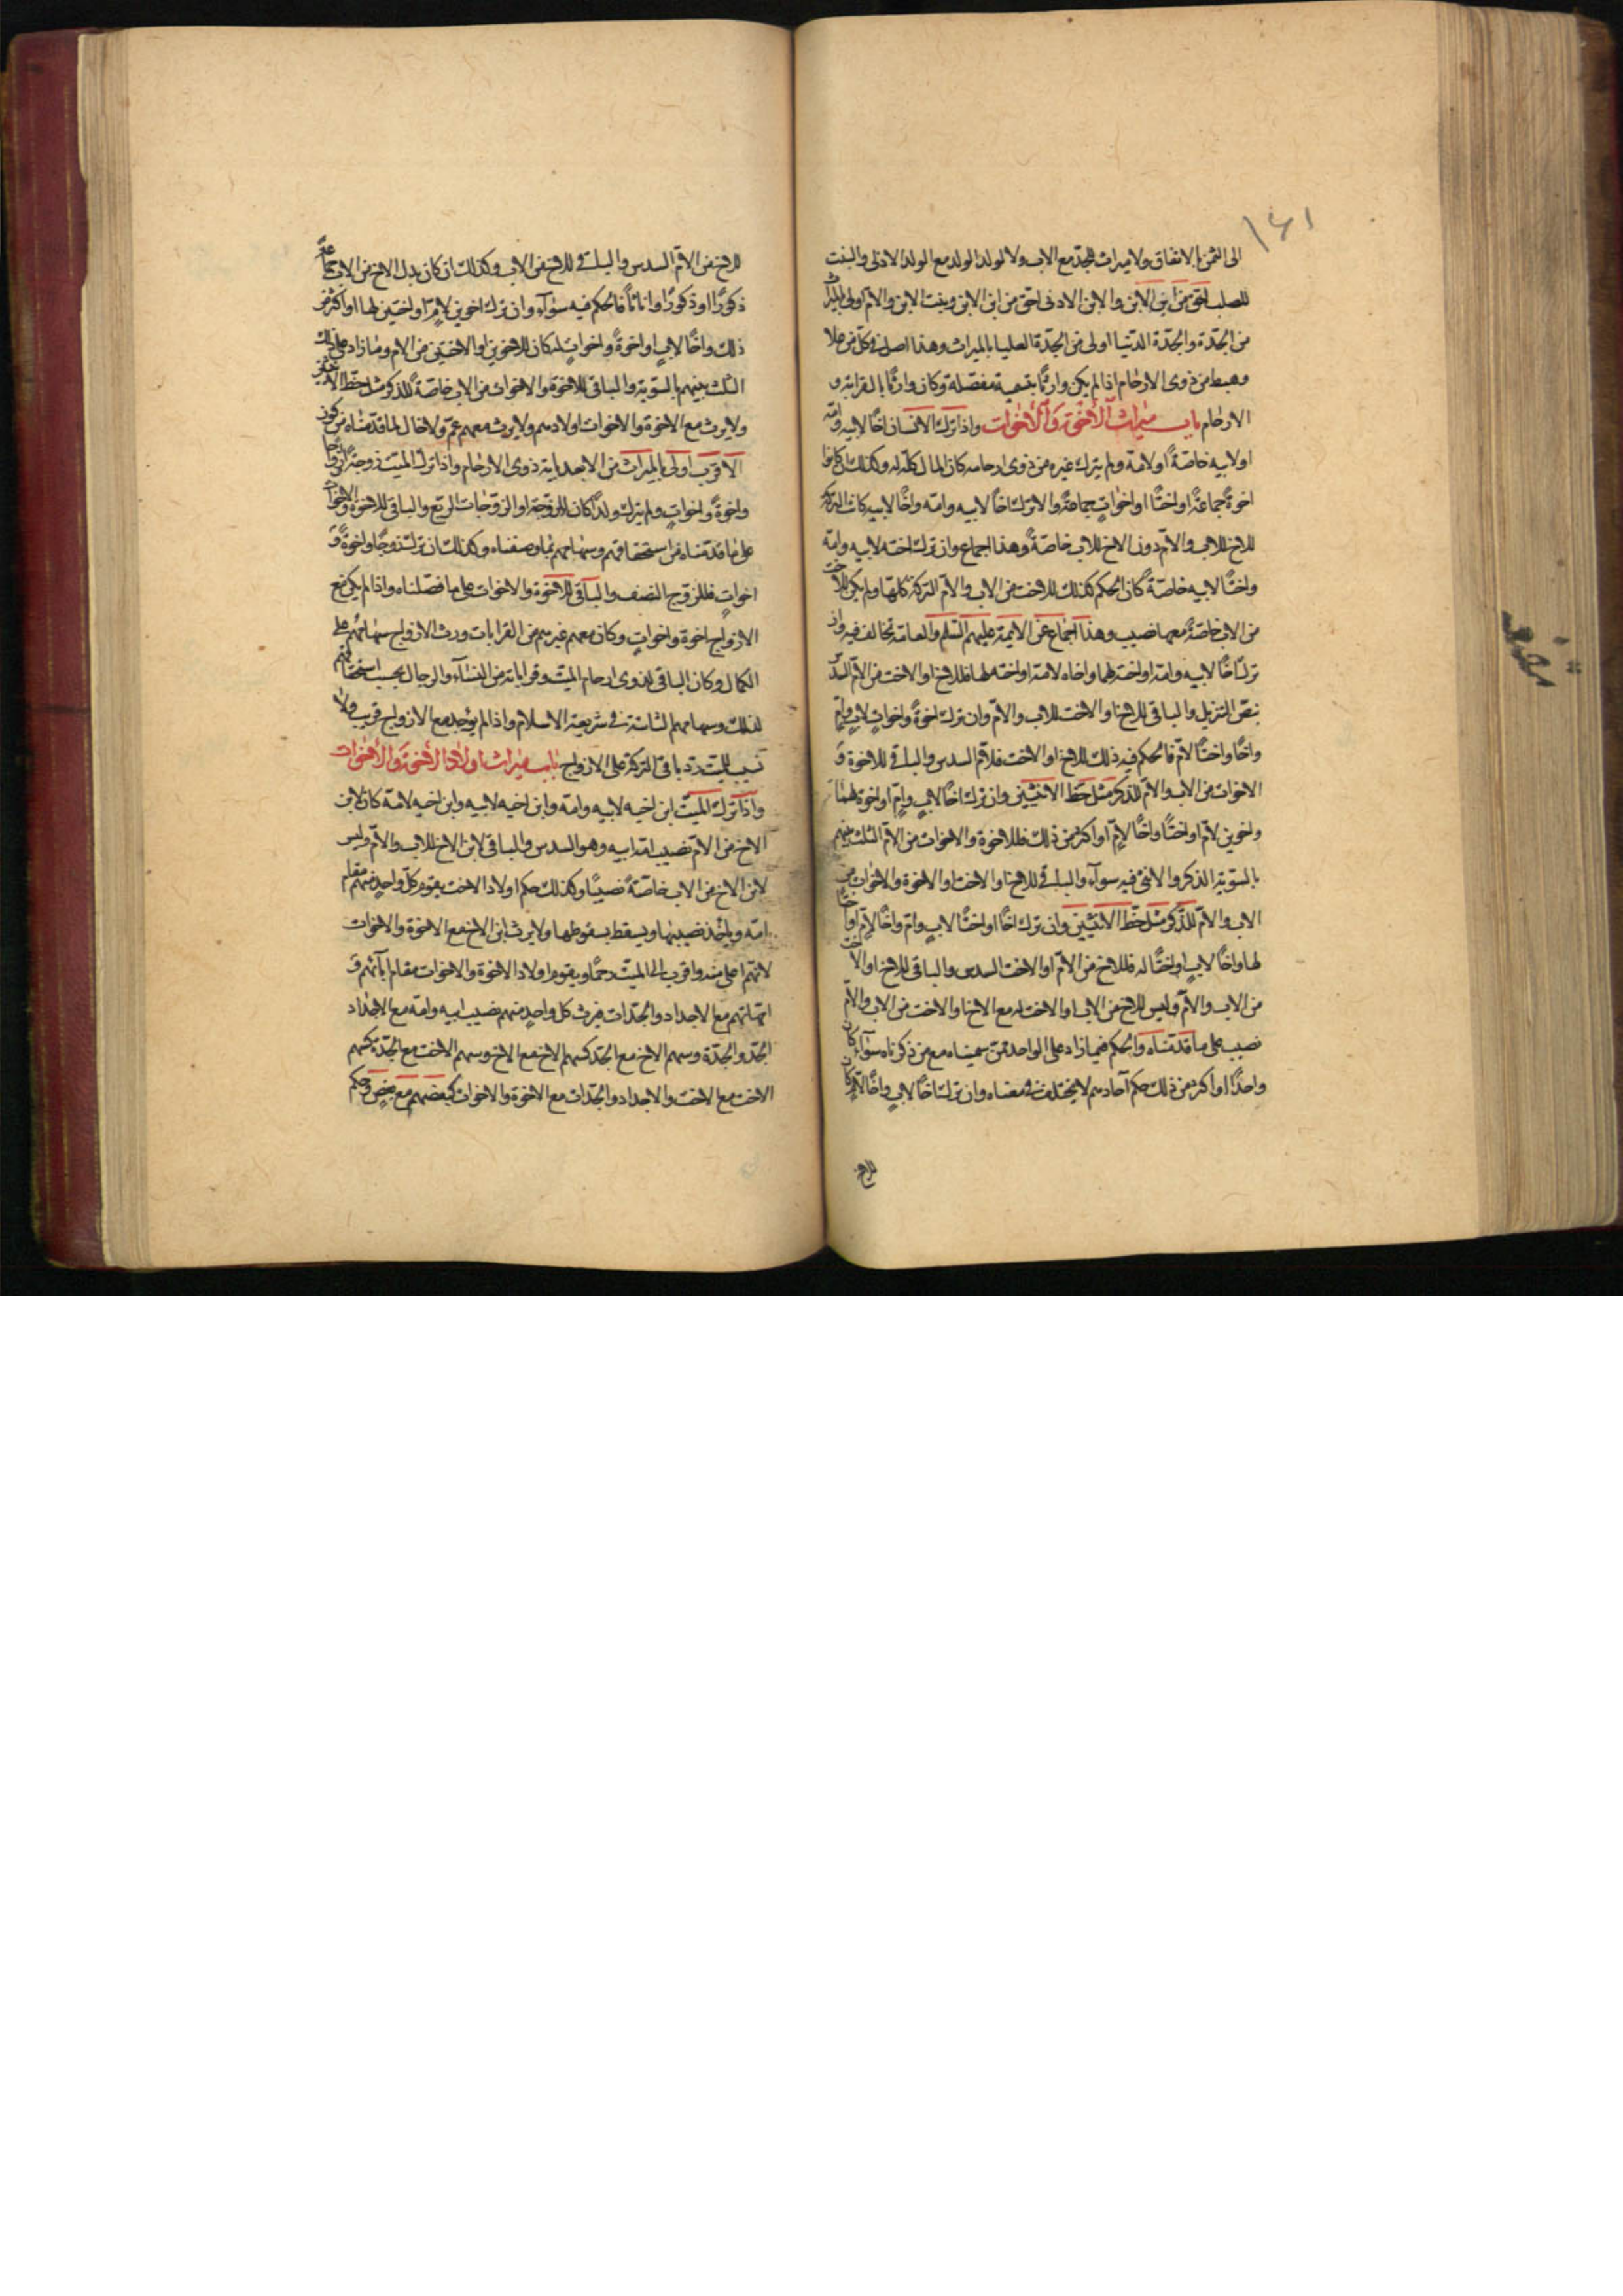 ١٤١
الى الثمن بالاتفاق ولا ميراث للجد مع الاب ولا لولد الولد مع الولد الادنى والبنت
للصلب احق من ابن الابن والابن الادنى احق من ابن الابن وبنت الابن والام اولى بالميراث
من الجدة والجدة الدنيا اولى من الجدة العليا بالميراث وهذا اصل فى كل من علا
وهبط من ذوى الارحام اذا لم يكن وارثا بتسمية مفصلة وكان وارثا بالقرابة و
الارحام باب ميراث الأخوة والأخوات واذا ترك الانسان اخا لابيه وامه
او لابيه خاصة او لامه ولم يترك غيره من ذوى ارحامه كان المال كله له وكذلك ان كانوا
اخوة جماعة او اختا او اخوات جماعة وان ترك اخا لابيه وامه واخا لابيه كانت التركة
للاخ للاب والام دون الاخ للاب خاصة وهذا اجماع وان ترك اخته لابيه وامه
واختا لابيه خاصة كان الحكم كذلك للاخت من الاب والام التركة كلها ولم يكن للاخت
من الاب خاصة معها نصيب وهذا اجماع عن الايمة عليهم السلم والعامة تخالف فيه وان
ترك اخا لابيه وامه او اخته لهما واخاه لامه او اخته لها فللاخ او الاخت من الام السدس
بنص التنزيل والباقى للاخ او الاخت للاب والام وان ترك اخوة واخوات لاب وام
واخا واختا لام فالحكم فيه ذلك للاخ او الاخت فلام السدس والباقى للاخوة و
الاخوات من الاب والام للذكر مثل حظ الانثيين وان ترك اخا لاب وام او اخوة لهما
واخوين لام او اختا واخا لام او اكثر من ذلك فللاخوة والاخوات من الام الثلث بينهم
بالسوية الذكر والانثى فيه سواء والباقى للاخ او الاخت او الاخوة والاخوات من
الاب والام للذكر مثل حظ الانثيين وان ترك اخا او اختا لاب وام واخا لام او اختا
لها واخا لاب او اختا له فللاخ من الام او الاخت السدس والباقى للاخ او الاخت
من الاب والام وليس للاخ من الاب او الاخت له مع الاخ او الاخت من الاب والام
نصيب على ما قدمناه والحكم فيما زاد على الواحد ممن سميناه مع من ذكرناه سواء كان
واحدا او اكثر من ذلك حكم آحادهم لا يختلف فى معناه وان ترك اخا لاب واخا لام كان
للاخ
للاخ من الام السدس والباقى للاخ من الاب وكذلك ان كان بدل الاخ من الاب جماعة
ذكورا او ذكورا واناثا فالحكم فيه سواء وان ترك اخوين لام او اختين لها او اكثر من
ذلك واخا لاب او اخوة واخوات له كان للاخوين او الاختين من الام وما زاد على ذلك
الثلث بينهم بالسوية والباقى للاخوة والاخوات من الاب خاصة للذكر مثل حظ الانثيين
ولا يرث مع الاخوة والاخوات اولادهم ولا يرث معهم عم ولا خال لما قدمناه من كون
الاقرب اولى بالميراث من الابعد بآية ذوى الارحام واذا ترك الميت زوجة او ازواجا
واخوة واخوات ولم يترك ولدا كان للزوجة او الزوجات الربع والباقى للاخوة والاخوات
على ما قدمناه من استحقاقهم وسهامهم بما وصفناه وكذلك ان ترك زوجا واخوة و
اخوات فللزوج النصف والباقى للاخوة والاخوات على ما فصلناه واذا لم يكن مع
الازواج اخوة واخوات وكان معهم غيرهم من القرابات ورث الازواج سهامهم على
الكمال وكان الباقى لذوى ارحام الميت وقراباته من النساء والرجال بحسب استحقاقهم
لذلك وسهامهم الثابتة فى شريعة الاسلام واذا لم يوجد مع الازواج قريب ولا
نسيب للميت رد باقى التركة على الازواج باب ميراث اولاد الأخوة والأخوات
واذا ترك الميت ابن اخيه لابيه وامه وابن اخيه لابيه وابن اخيه لامه كان لابن
الاخ من الام نصيب امه ابيه وهو السدس والباقى لابن الاخ للاب والام وليس
لابن الاخ من الاب خاصة نصيبا وكذلك حكم اولاد الاخت يقوم كل واحد منهم مقام
امه وياخذ نصيبها ويسقط بسقوطها ولا يرث ابن الاخ مع الاخوة والاخوات
لانهم اعلى منه واقرب الى الميت رحما ويقوم اولاد الاخوة والاخوات مقام آبائهم و
امهاتهم مع الاجداد والجدات فيرث كل واحد منهم نصيب ابيه وامه مع الاجداد
الجد والجدة وسهم الاخ مع الجد كسهم الاخ مع الاخ وسهم الاخت مع الجدة كسهم
الاخت مع الاخت والاجداد والجدات مع الاخوة والاخوات كبعضهم مع بعض وحكم